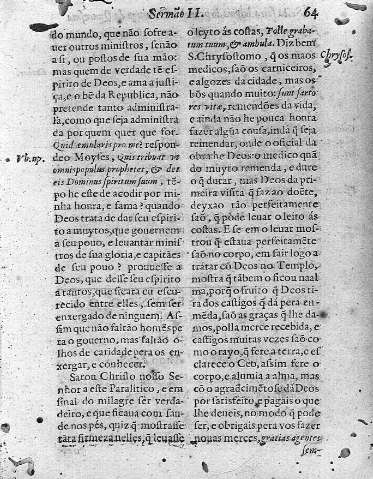 Sermão II. 64
do mundo, que não sofre a-
uer outros ministros, senão
a si, ou postos de sua mão:
mas quem de verdade tẽ es-
pirito de Deos, e ama a justi-
ça, e o bẽ da Republica, não
pretende tanto administra-
la, como que seja administra
da por quem quer que for.
Quid emularis pro me? respon-
deo Moyses,
Vb. sup.
omnis populus prophetet, & det
eis Dominus spiritum suum, tẽ-
po he esse de acodir por mi-
nha honra, e fama? quando
Deos trata de dar seu espiri-
to a muytos, que gouernem
a seu pouo, e leuantar minis-
tros de sua gloria, e capitães
de seu pouo? prouuesse a
Deos, que desse seu espirito
a tantos, que ficara eu escu-
recido entre elles, sem ser
enxergado de ninguem. As-
sim que não faltão homẽs pe
ra o governo, mas faltão o-
lhos de caridade pera os en-
xergar, e conhecer.
Sarou Christo nosso Se-
nhor a este Paralitico, e em
sinal do milagre ser verda-
deiro, e que ficaua com sau-
de nos pés, quiz q̃ mostrasse
tãta firmeza nelles, q̃ leuasse
o leyto ás costas, Tolle graba-
tum tuum, & ambula. Diz bem
S. Chrysostomo, q̃ os maos
Chrysost.
medicos, saõ os carniceiros,
e algozes da cidade, mas os
bõs quando muito: sunt sarto
res vitæ, remendões da vida,
e ainda não he pouca honra
fazer algũa cousa, inda q̃ seja
remendar, onde o official da
obra he Deos: o medico quã
do muyto remenda, e dure
o q̃ durar, mas Deos da pri-
meira visita q̃ faz ao doẽte,
deyxao tão perfeitamente
saõ, q̃ póde leuar o leito ás
costas. E se em o leuar mos-
trou q̃ estaua perfeitamẽte
saõ no corpo, em sair logo a
tratar cõ Deos no Templo,
mostra q̃ tãbem o ficou naal
ma, porq̃ o fruito q̃ Deos ti-
ra dos castigos q̃ dá pera en-
mẽda, saõ as graças q̃ lhe da-
mos, polla merce recebida, e
castigos muitas vezes saõ co-
mo o rayo, q̃ fere a terra, e es
clarece o Ceo, assim fere o
corpo, e alumia a alma, mas
cõ o agradecimẽto se dá Deos
por satisfeito, e pagais o que
lhe deueis, no modo q̃ pode
ser, e obrigais pera vos fazer
nouas merces, gratias agentes
sem-